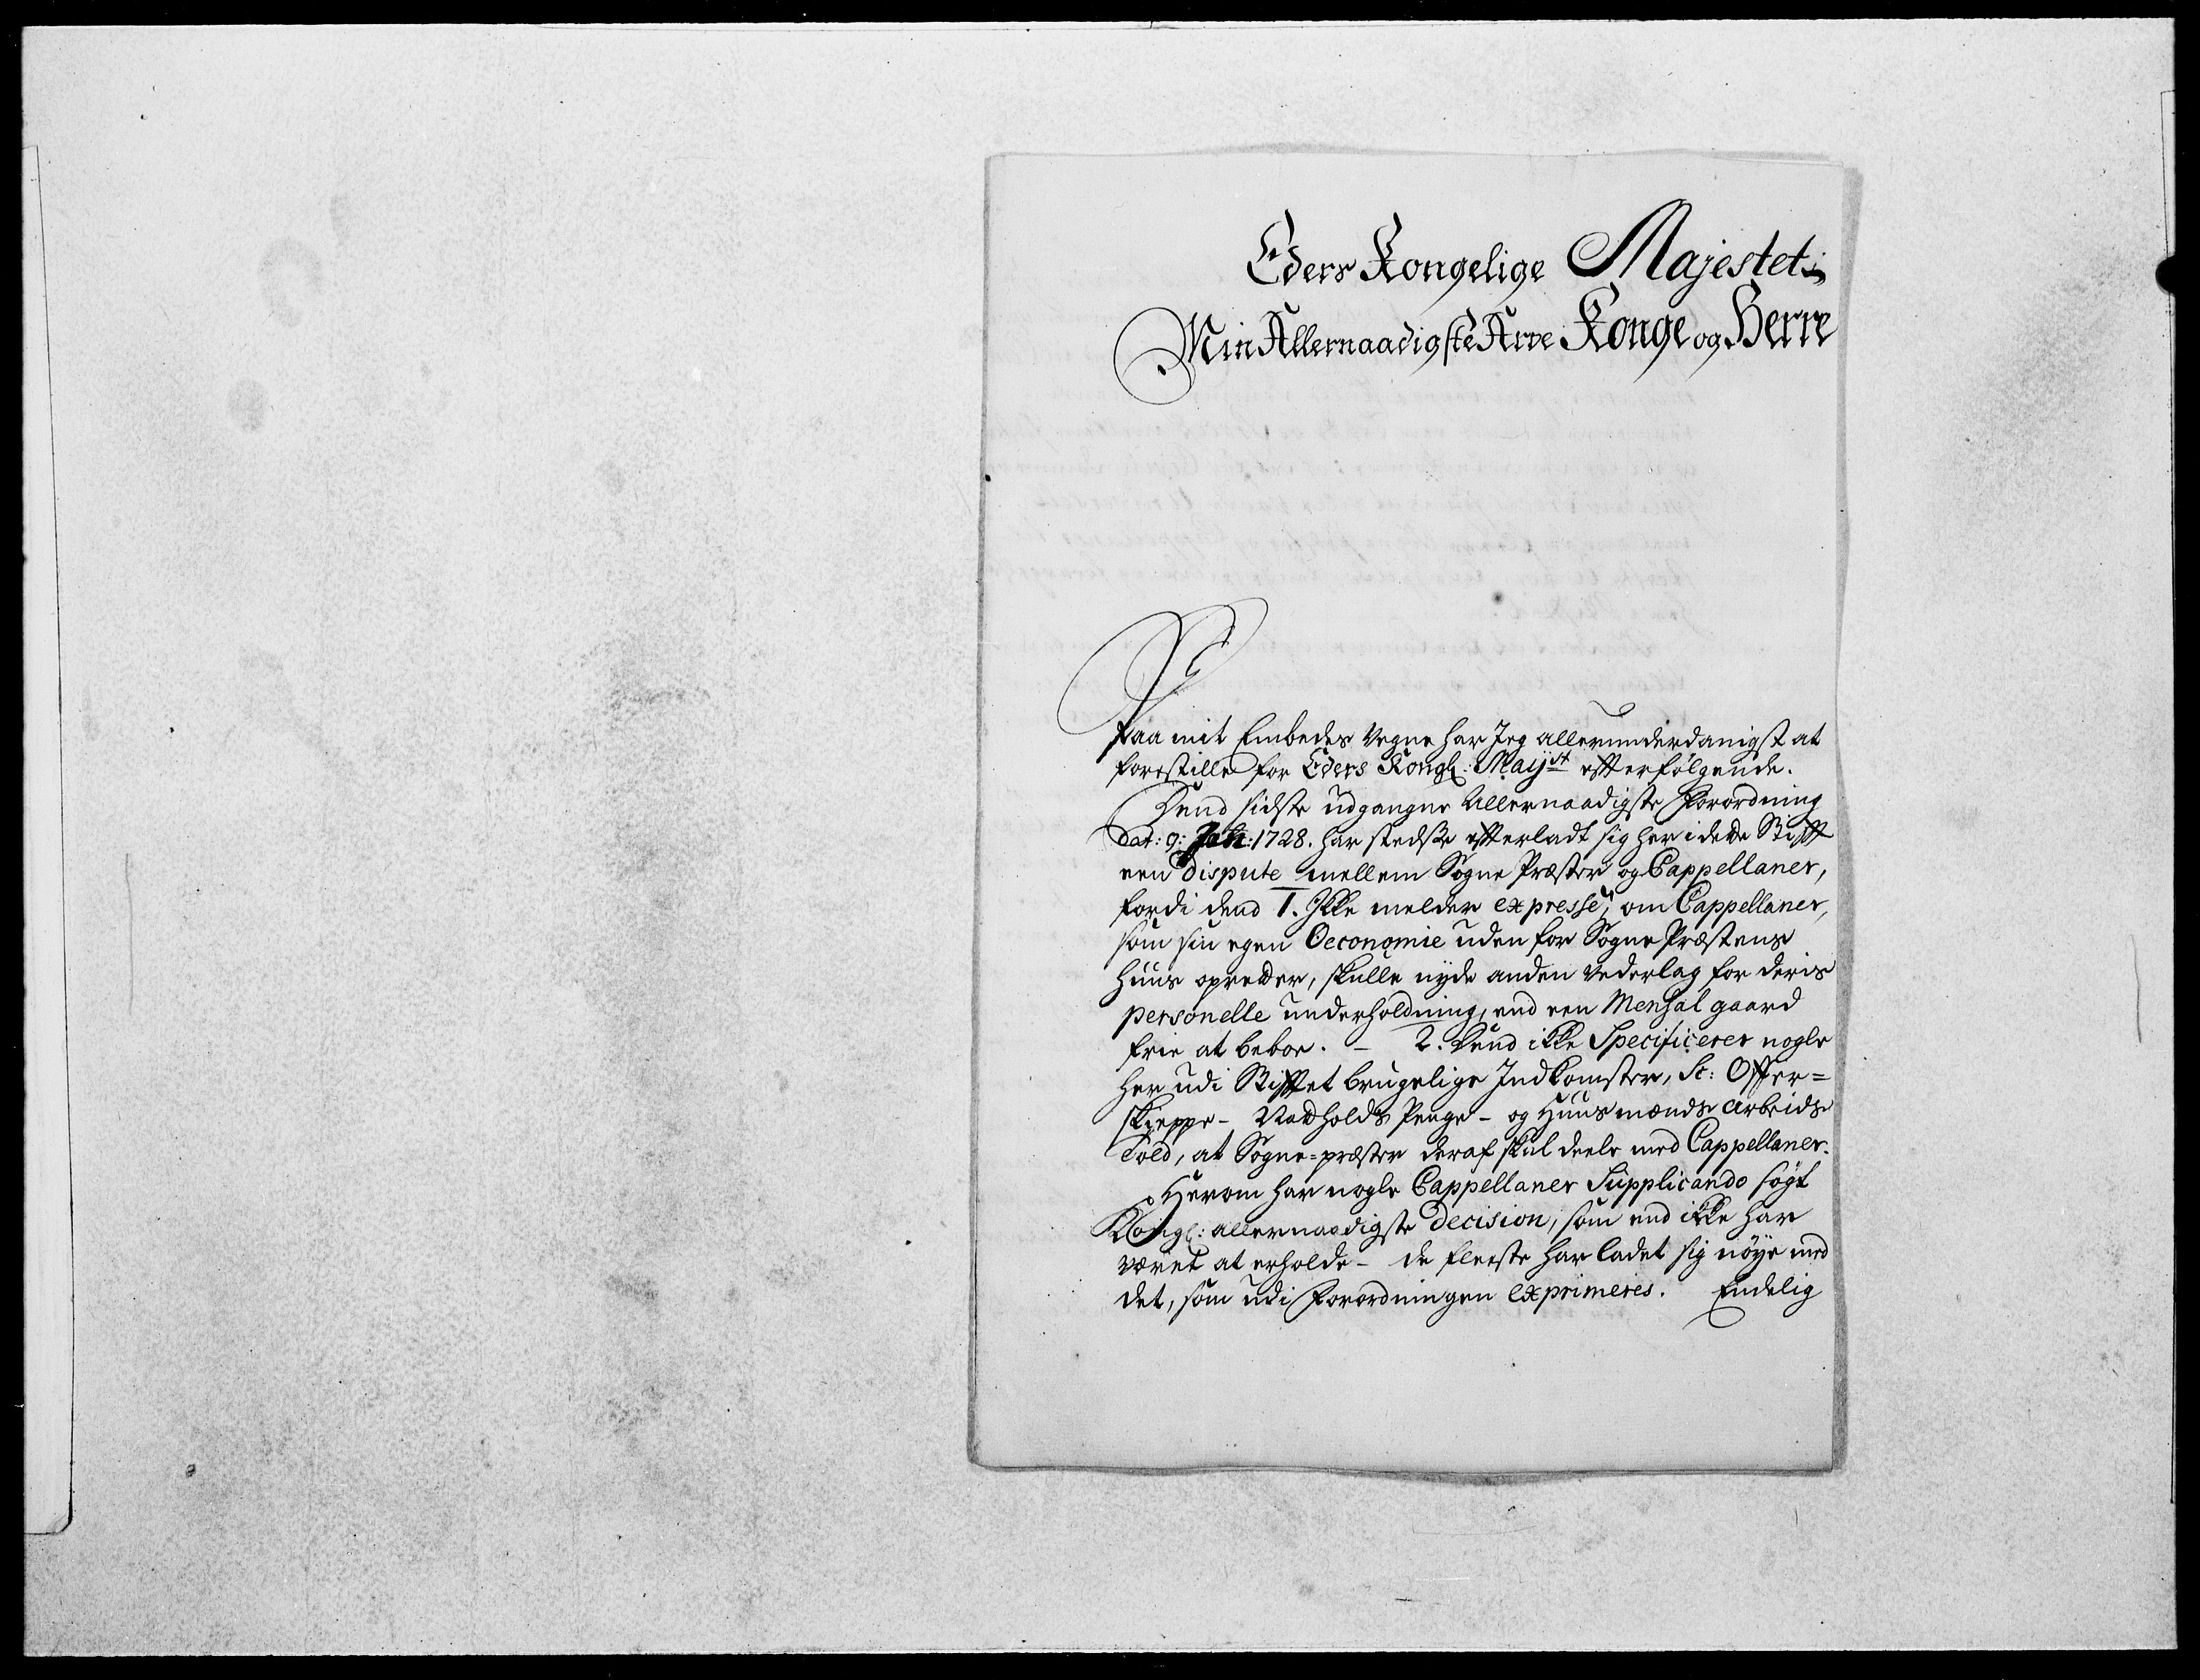 Eders Kongelige Majestet
Min Allernaadigste Arve Konge og Herre
Paa mit Embedes Vegne har Jeg allerunderdanigst at
forestille for Eders Kongl: Mayst efterfølgende.
Dend sidste udgangne Allernaadigste Forordning
Dat: 9: Jan: 1728. har stedsse efterladt sig her i dette Stifft
een dispute mellem Sogne Præster og Cappellaner,
fordi dend 1. Ikke melder expresse, om Cappellaner,
som sin egen Oeconomie uden for Sogne Præstens
Huus opretter, skulle nyde anden Vederlag for deris
personelle underholdning, end een Mensal gaard
frie at beboe. - 2. Dend ikke Specificerer nogle
her udi Stifftet brugelige Indkomster, Sc: Offer=
skieppe - Nattholds Penge - og Huusmænds Arbeids
told, at Sogne=præster deraf skul deele med Cappellaner.
Herom har nogle Cappellaner Supplicando søgt
Kongl: allernaadigste Decision, som end ikke har
været at erholde - de fleeste har ladet sig nøye med
det, som udi Forordningen exprimeres. Endelig